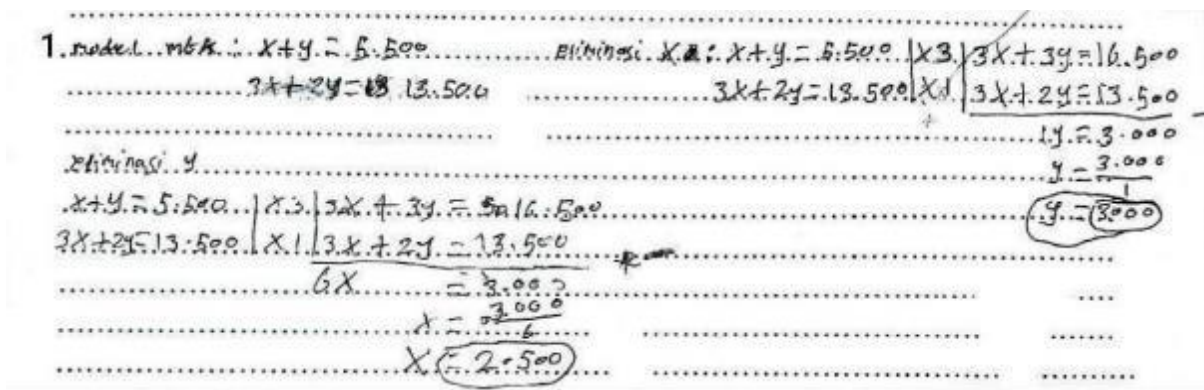 1. model mtk : x+y = 5.500
3x+2y = 13.500
eliminasi x : x+y = 5.500 | x3 | 3x + 3y = 16.500
3x+2y = 13.500 | x1 | 3x + 2y = 13.500 -
1y = 3.000
y = 3.000 / 1
y = 3.000
eliminasi y
x+y = 5.500 | x3 | 3x + 3y = 16.500
3x+2y = 13.500 | x1 | 3x + 2y = 13.500
6x = 3.000
x = 3.000 / 6
x = 2.500